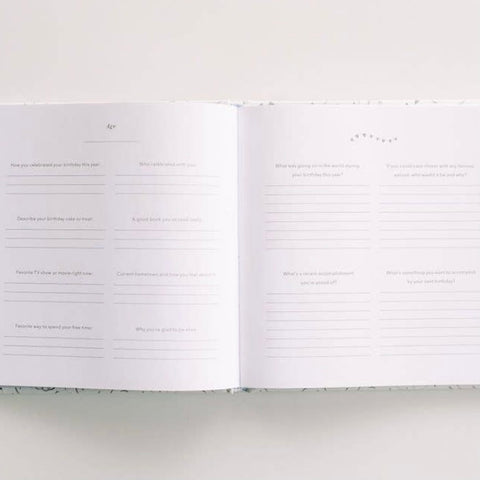 Age
How you celebrated your birthday this year:
Who celebrated with you:
Describe your birthday cake or treat:
A good book you've read lately:
Favorite TV show or movie right now:
Current hometown and how you feel about it:
Favorite way to spend your free time:
Why you're glad to be alive:
What was going on in the world during
your birthday this year?
If you could share dinner with any famous
person, who would it be and why?
What's a recent accomplishment
you're proud of?
What's something you want to accomplish
by your next birthday?